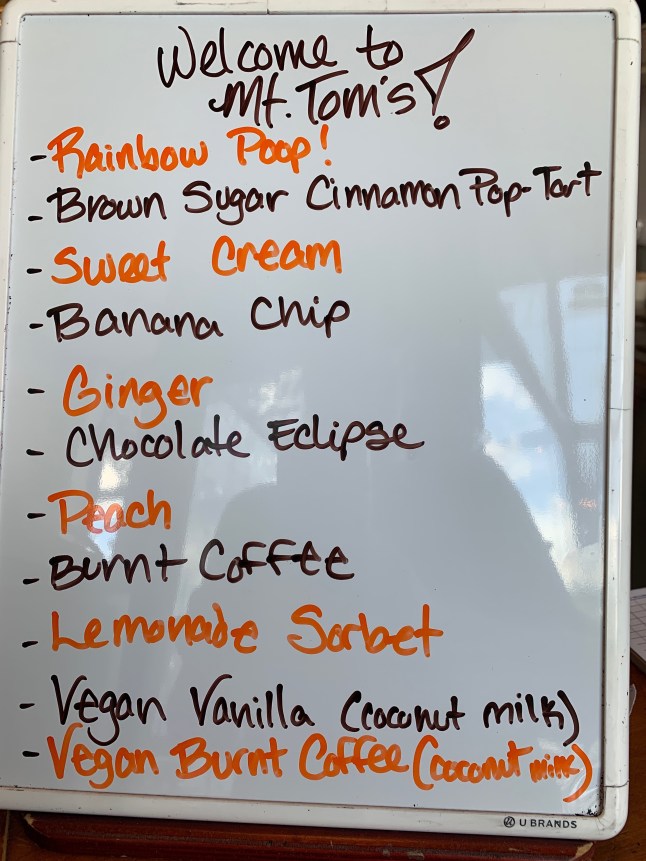 Welcome to
Mt. Tom's!
-Rainbow Poop!
-Brown Sugar Cinnamon Pop-Tart
-Sweet Cream
-Banana Chip
-Ginger
-Chocolate Eclipse
-Peach
-Burnt Coffee
-Lemonade Sorbet
-Vegan Vanilla (coconut milk)
-Vegan Burnt Coffee (coconut milk)
U BRANDS